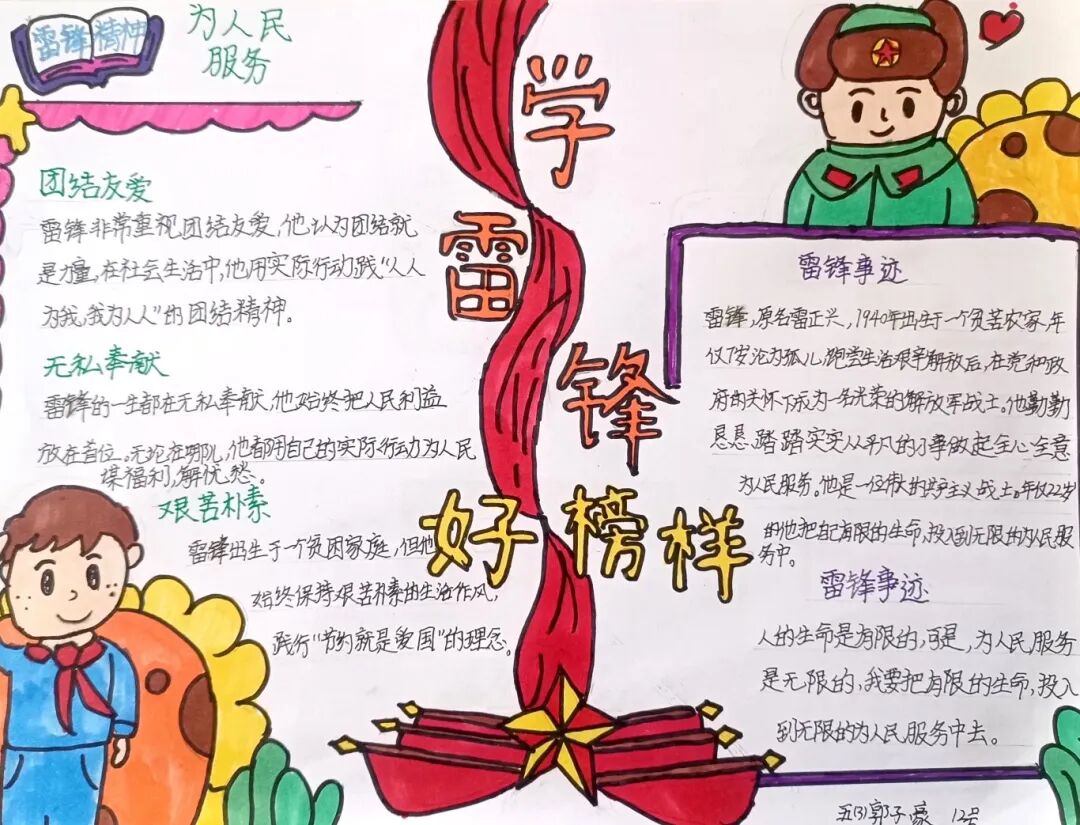 雷锋精神
为人民
服务
团结友爱
雷锋非常重视团结友爱,他认为团结就
是力量,在社会生活中,他用实际行动践“人人
为我,我为人人”的团结精神。
无私奉献
雷锋的一生都在无私奉献,他始终把人民利益
放在首位。无论在哪儿,他都用自己的实际行动为人民
谋福利,解忧愁。
艰苦朴素
雷锋出生于一个贫困家庭,但他
始终保持艰苦朴素的生活作风,
践行“节约就是爱国”的理念。
学
雷
锋
好榜样
雷锋事迹
雷锋,原名雷正兴,1940年出生于一个贫苦农家,年
仅7岁沦为孤儿,饱尝生活艰辛解放后,在党和政
府的关怀下成为一名光荣的解放军战士。他勤勤
恳恳、踏踏实实从平凡的小事做起全心全意
为人民服务。他是一位伟大的共产主义战士。年仅22岁
的他把自己有限的生命,投入到无限的为人民服
务中。
雷锋事迹
人的生命是有限的,可是,为人民服务
是无限的,我要把有限的生命,投入
到无限的为人民服务中去。
五(3)郭子豪 12号